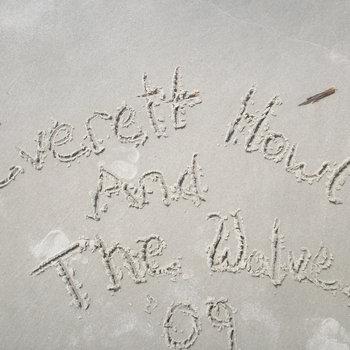 Everett Howl
And
The Wolve
'09